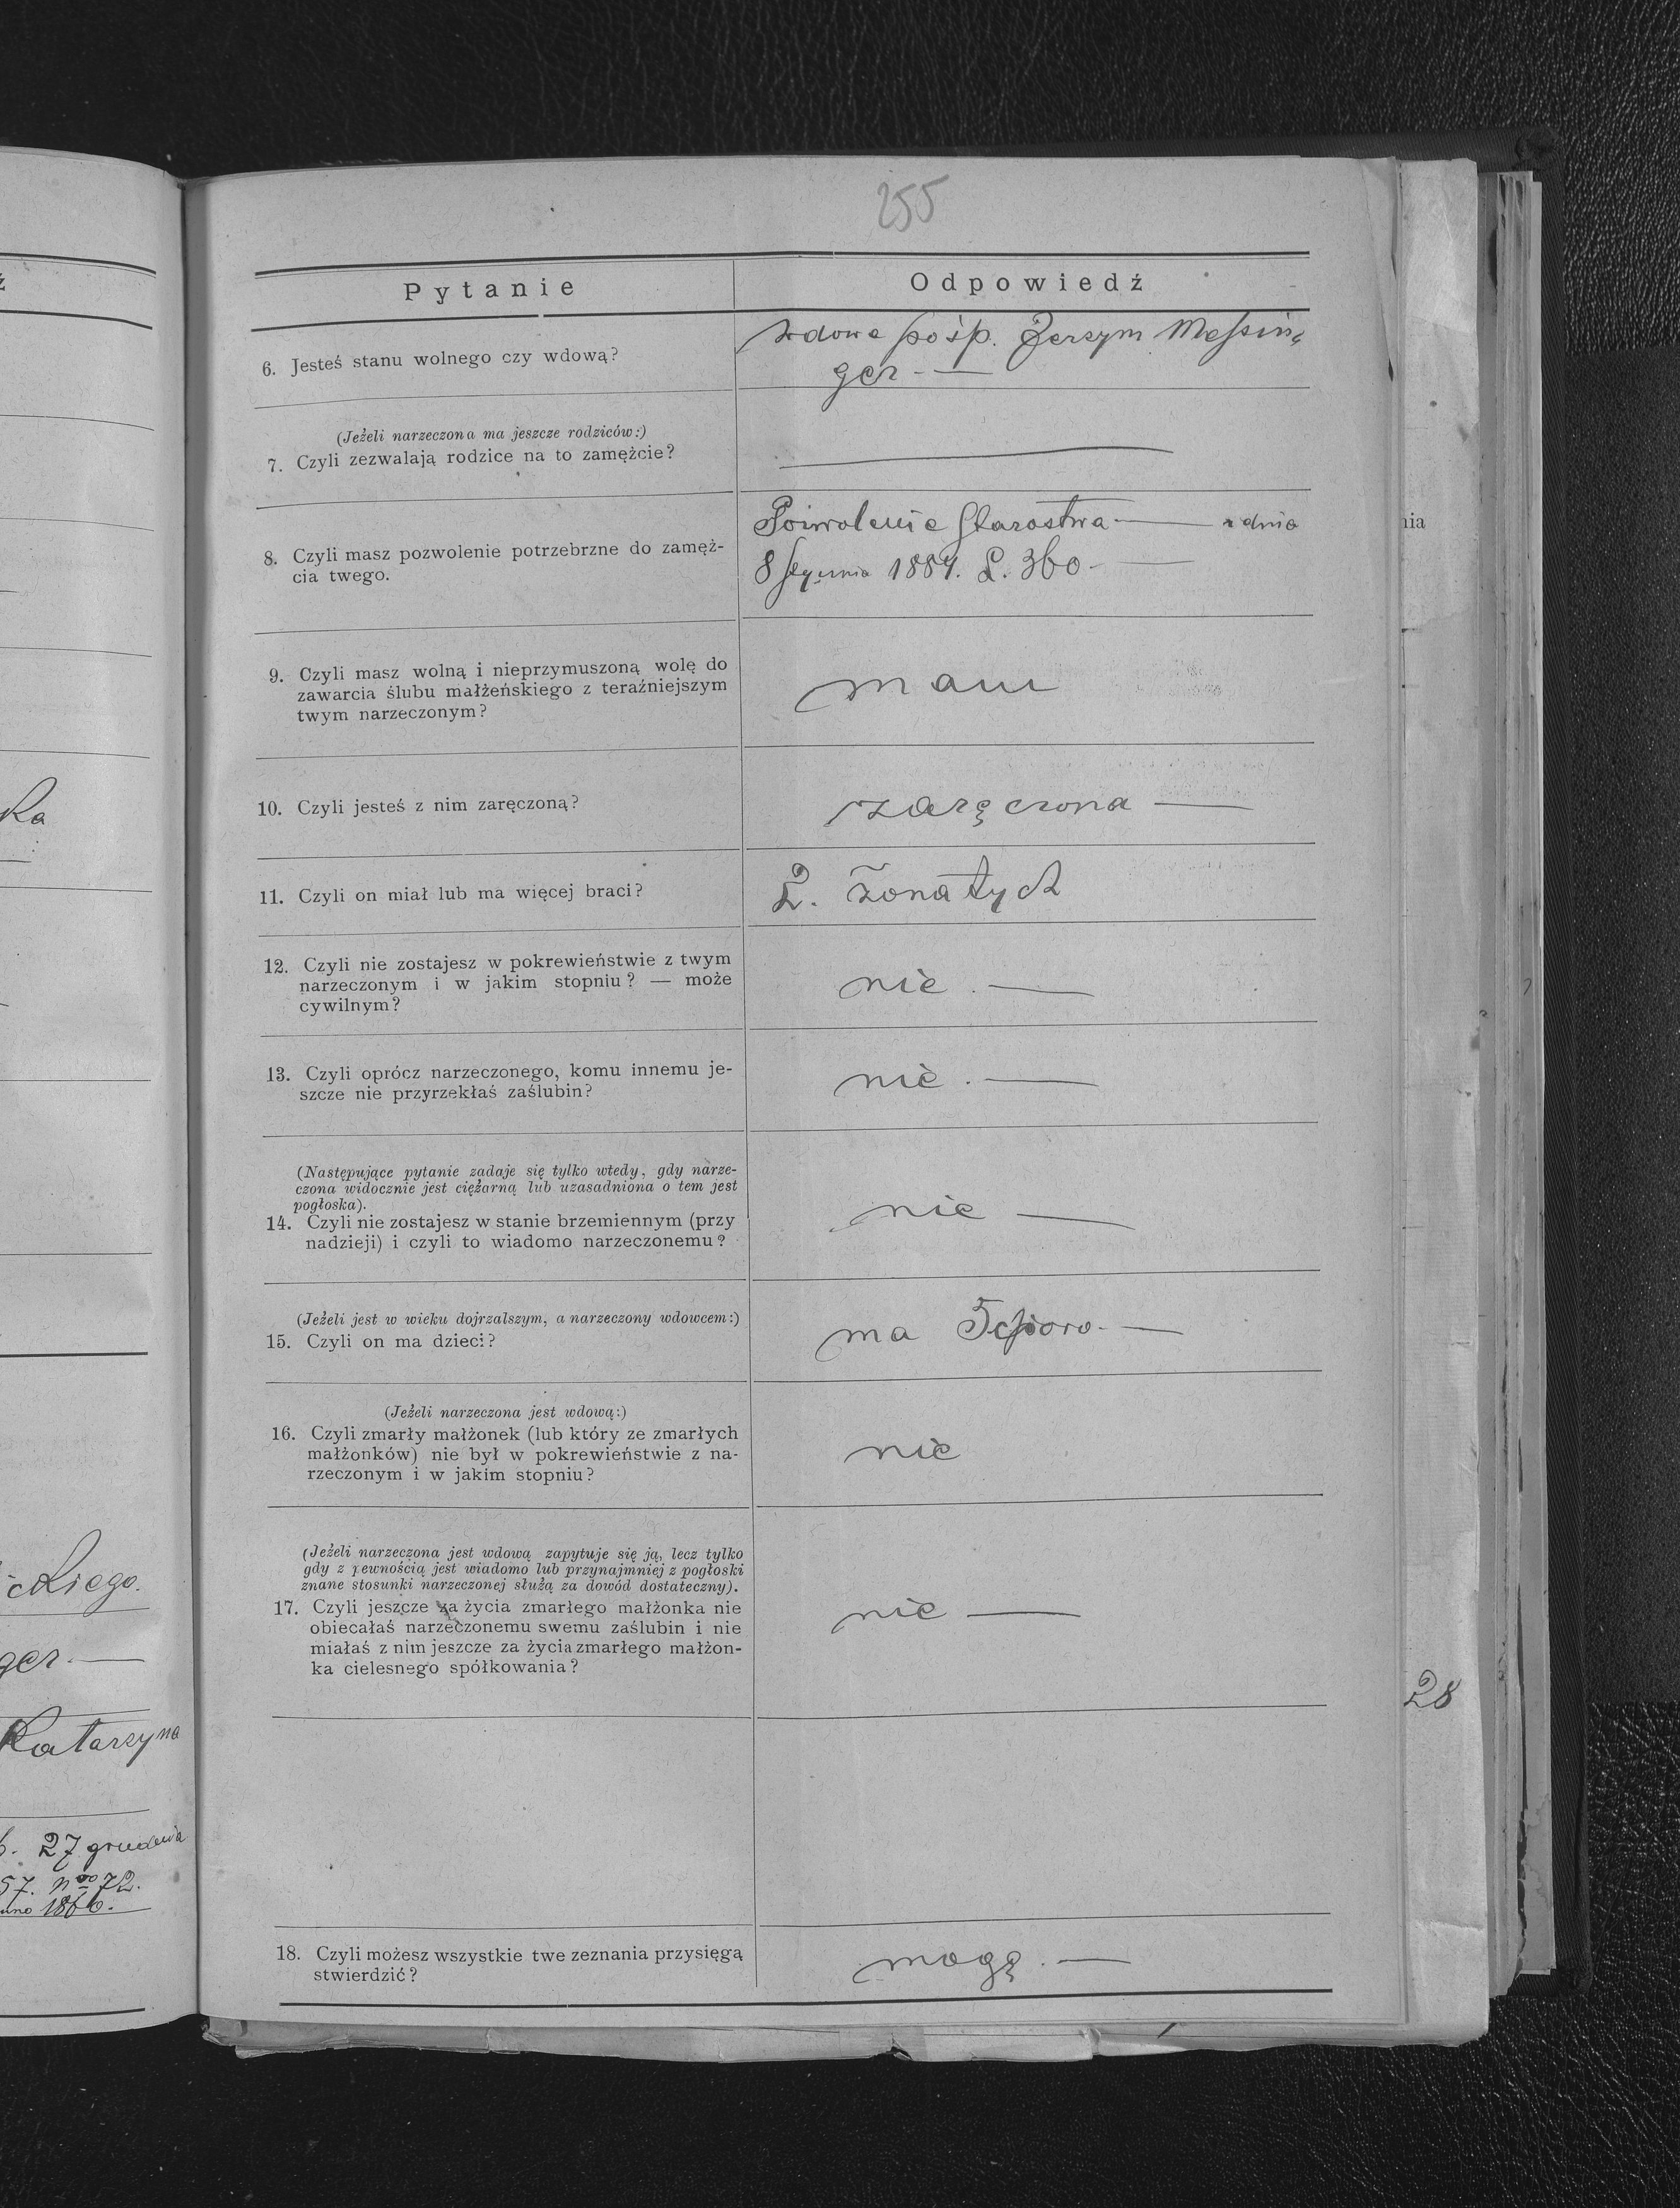 255
Pytanie
Odpowiedź
6. Jesteś stanu wolnego czy wdową?
wdowa po śp. Jerzym Messin-
ger —
(Jeżeli narzeczona ma jeszcze rodziców:)
7. Czyli zezwalają rodzice na to zamężcie?
8. Czyli masz pozwolenie potrzebrzne do zamęż-
cia twego.
Pozwolenie Starostwa — z dnia
8 Stycznia 1889. L. 360 —
9. Czyli masz wolną i nieprzymuszoną wolę do
zawarcia ślubu małżeńskiego z teraźniejszym
twym narzeczonym?
mam
10. Czyli jesteś z nim zaręczoną?
zaręczona —
11. Czyli on miał lub ma więcej braci?
2. żonatych
12. Czyli nie zostajesz w pokrewieństwie z twym
narzeczonym i w jakim stopniu? — może
cywilnym?
nie. —
13. Czyli oprócz narzeczonego, komu innemu je-
szcze nie przyrzekłaś zaślubin?
nie. —
(Następujące pytanie zadaje się tylko wtedy, gdy narze-
czona widocznie jest ciężarną lub uzasadniona o tem jest
pogłoska).
14. Czyli nie zostajesz w stanie brzemiennym (przy
nadzieji) i czyli to wiadomo narzeczonemu?
nie —
(Jeżeli jest w wieku dojrzalszym, a narzeczony wdowcem:)
15. Czyli on ma dzieci?
ma 5
(Jeżeli narzeczona jest wdową:)
16. Czyli zmarły małżonek (lub który ze zmarłych
małżonków) nie był w pokrewieństwie z na-
rzeczonym i w jakim stopniu?
nie
(Jeżeli narzeczona jest wdową zapytuje się ją, lecz tylko
gdy z pewnością jest wiadomo lub przynajmniej z pogłoski
znane stosunki narzeczonej służą za dowód dostateczny).
17. Czyli jeszcze za życia zmarłego małżonka nie
obiecałaś narzeczonemu swemu zaślubin i nie
miałaś z nim jeszcze za życia zmarłego małżon-
ka cielesnego spółkowania?
nie —
18. Czyli możesz wszystkie twe zeznania przysięgą
stwierdzić?
mogę. —
ka
ckiego.
ger —
Katarzyna
27 grudnia
57. Nro 72.
1866.
nia
28